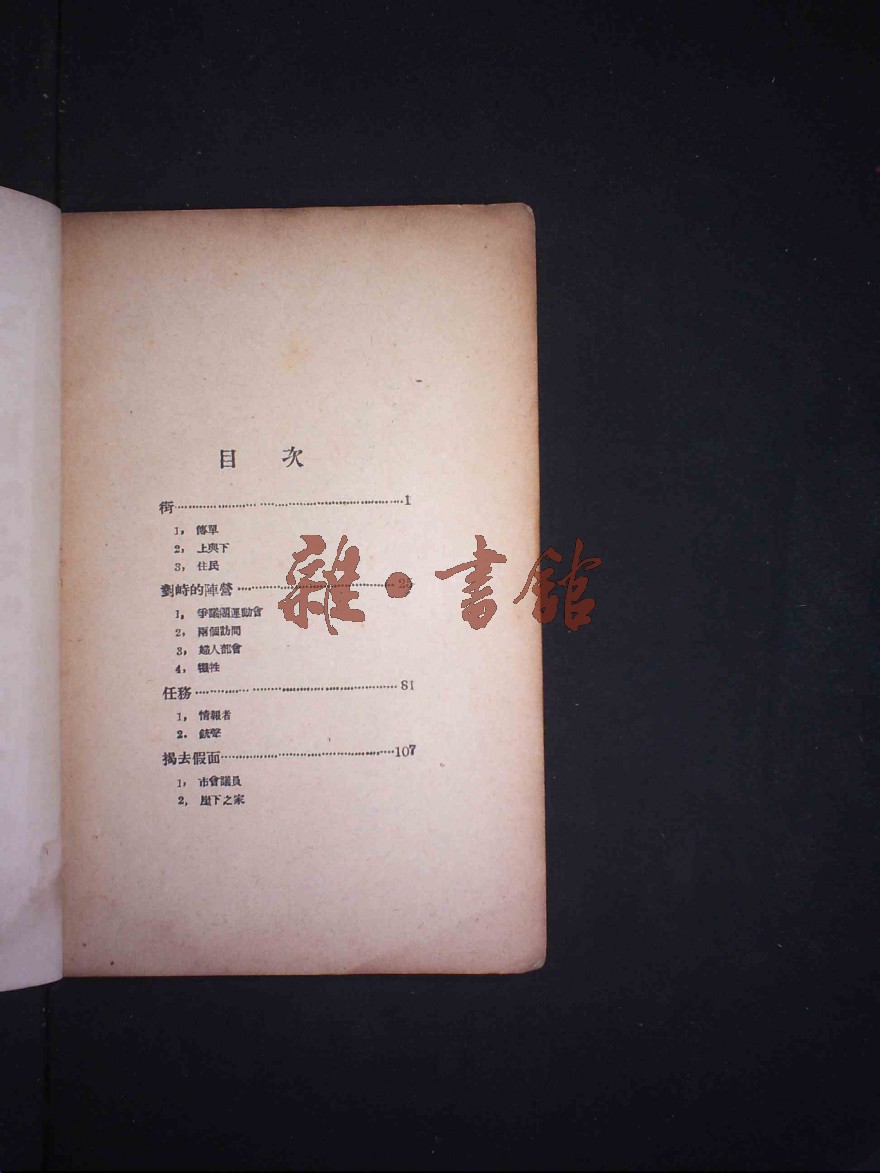 目 次
街……………………………………1
1, 傳單
2, 上與下
3, 住民
對峙的陣營……………………………25
1, 爭議團運動會
2, 兩個訪問
3, 婦人部會
4, 犧牲
任務……………………………………81
1, 情報者
2. 銃聲
揭去假面………………………………107
1, 市會議員
2, 崖下之家
雜·書館